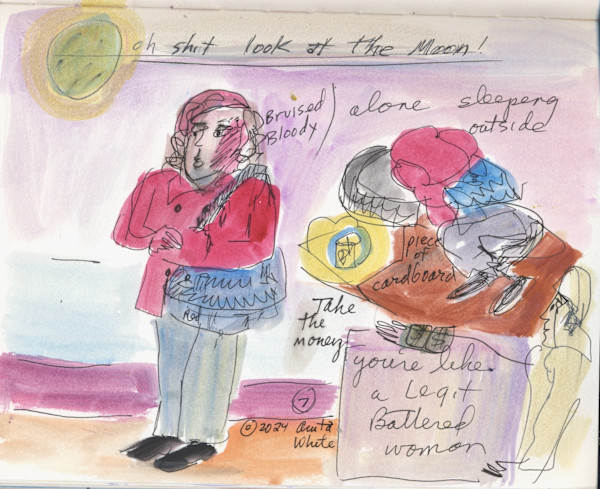 oh shit look at the Moon!
Bruised
Bloody
alone sleeping
outside
piece
of
cardboard
Take
the
money
you're like
a Legit
Battered
woman
7
© 2024 Anita
White